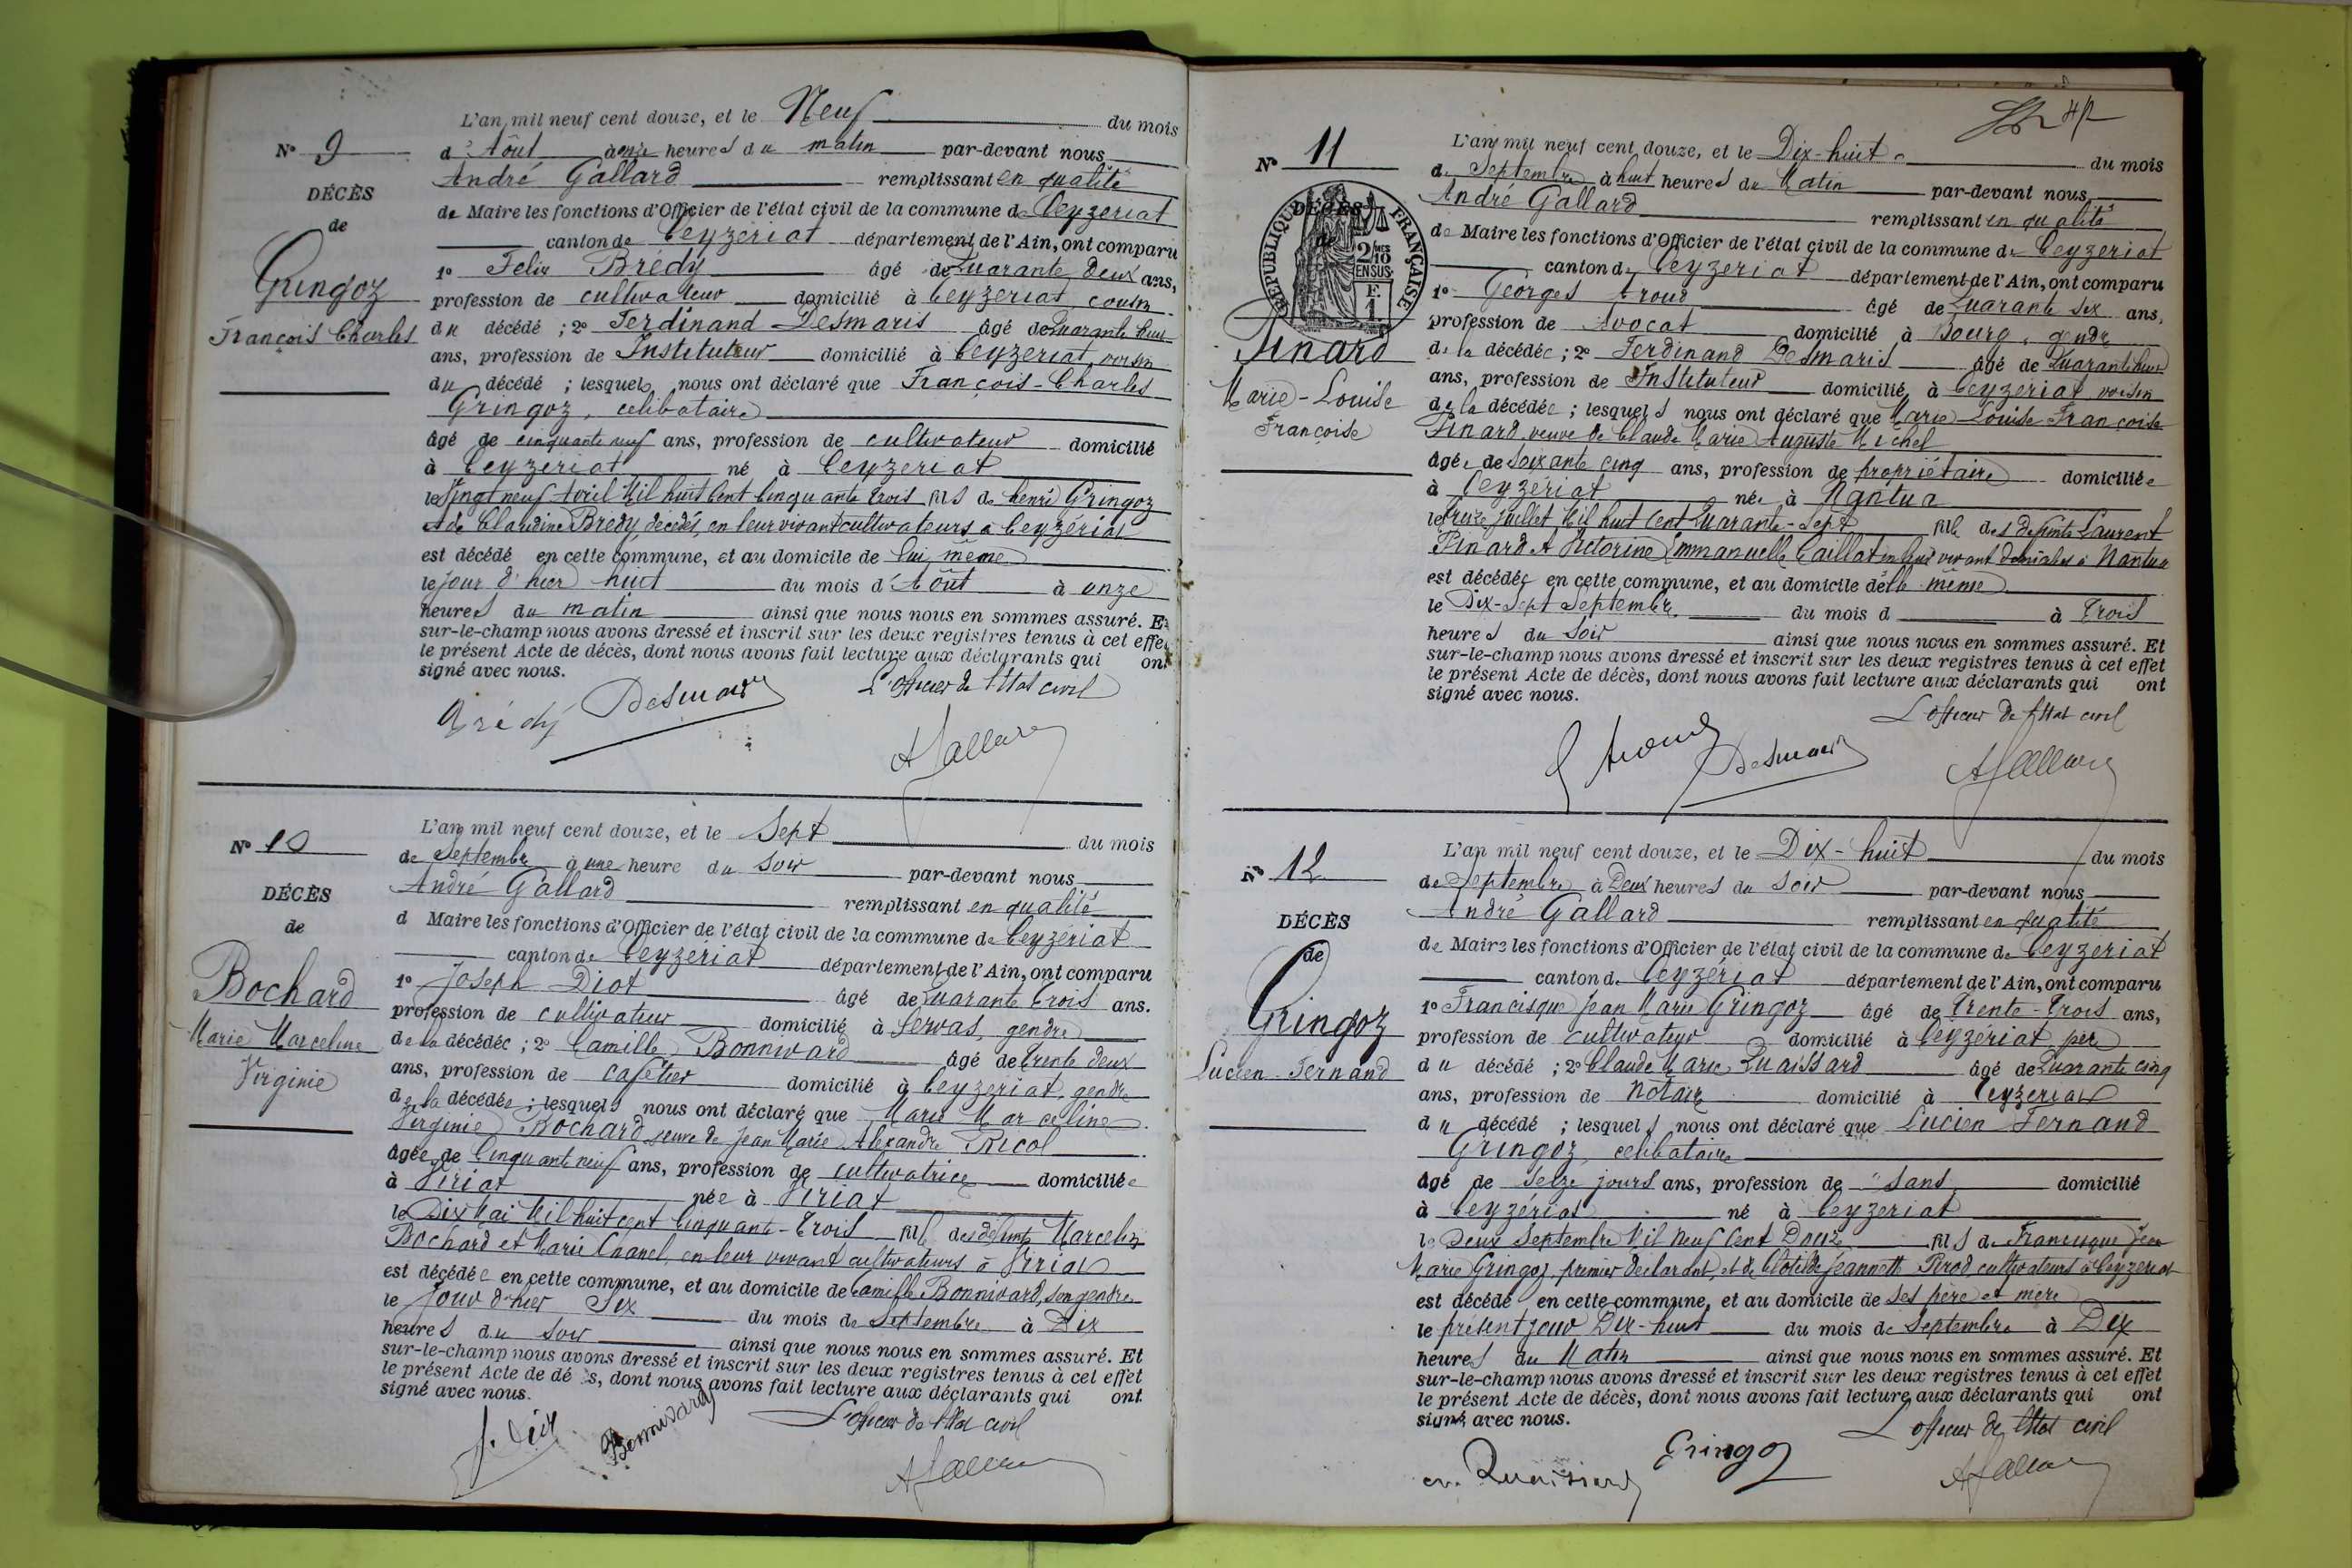 L'an mil neuf cent douze, et le Neuf du mois
N° 9
d'Août à onze heures du matin par-devant nous
DÉCÈS
André Gallard remplissant en qualité
de
de Maire les fonctions d'Officier de l'état civil de la commune de Ceyzeriat
canton de Ceyzeriat département de l'Ain, ont comparu
Gringoz
1° Felix Brédy âgé de Quarante deux ans,
profession de cultivateur domicilié à Ceyzeriat, cousin
François Charles
du décédé ; 2° Ferdinand Desmaris âgé de Quarante huit
ans, profession de Instituteur domicilié à Ceyzeriat, voisin
du décédé ; lesquels nous ont déclaré que François-Charles
Gringoz, celibataire
âgé de cinquante neuf ans, profession de cultivateur domicilié
à Ceyzeriat né à Ceyzeriat
le Vingt neuf Avril Mil huit Cent Cinquante trois fils de henri Gringoz
et de Claudine Bredy, décédés, en leur vivant cultivateurs à Ceyzériat
est décédé en cette commune, et au domicile de lui même
le jour d'hier huit du mois d'Août à onze
heures du matin ainsi que nous nous en sommes assuré. Et
sur-le-champ nous avons dressé et inscrit sur les deux registres tenus à cet effet
le présent Acte de décès, dont nous avons fait lecture aux déclarants qui ont
signé avec nous.
L'officier de l'Etat civil
Brédy Desmaris
AGallard
L'an mil neuf cent douze, et le Sept du mois
N° 10
de Septembre à une heure du soir par-devant nous
DÉCÈS
André Gallard remplissant en qualité
de
d Maire les fonctions d'Officier de l'état civil de la commune de Ceyzériat
canton de Ceyzériat département de l'Ain, ont comparu
Bochard
1° Joseph Diot âgé de Quarante trois ans.
profession de cultivateur domicilié à Servas, gendre
Marie Marceline
de la décédée ; 2° Camille Bonnivard âgé de trente deux
Virginie
ans, profession de cafetier domicilié à Ceyzeriat, gendre
de la décédée ; lesquels nous ont déclaré que Marie Marceline
Virginie Bochard veuve de Jean Marie Alexandre Ricol
âgée de Cinquante neuf ans, profession de cultivatrice domiciliée
à Viriat née à Viriat
le Dix Mai Mil huit cent Cinquante-trois fille des défunts Marcelin
Bochard et Marie Chanel, en leur vivant cultivateurs à Viriat
est décédée en cette commune, et au domicile de Camille Bonnivard, son gendre
le Jour d'hier Six du mois de Septembre à Dix
heures du soir ainsi que nous nous en sommes assuré. Et
sur-le-champ nous avons dressé et inscrit sur les deux registres tenus à cet effet
le présent Acte de dé s, dont nous avons fait lecture aux déclarants qui ont
signé avec nous.
L'officier de l'Etat civil
J. Diot Bonnivard
AGallard
L'an mil neuf cent douze, et le Dix-huit du mois
N° 11
de Septembre à huit heures du Matin par-devant nous
DÉCÈS
RÉPUBLIQUE FRANÇAISE
2/10 EN SUS
F. 1
André Gallard remplissant en qualité
de Maire les fonctions d'Officier de l'état civil de la commune de Ceyzériat
canton de Ceyzeriat département de l'Ain, ont comparu
1° Georges âgé de Quarante six ans,
profession de Avocat domicilié à Bourg, gendre
Pinard
de la décédée ; 2° Ferdinand Desmaris âgé de Quarante huit
Marie-Louise
ans, profession de Instituteur domicilié à Ceyzériat voisin
Françoise
de la décédée ; lesquels nous ont déclaré que Marie Louise Françoise
Pinard, veuve de Claude Marie Auguste Michel
âgée de Soixante cinq ans, profession de propriétaire domiciliée
à Ceyzériat née à Nantua
le treize juillet Mil huit Cent Quarante-Sept fille des défunts Laurent
Pinard et Victorine Emmanuelle Caillat en leur vivant domiciliés à Nantua
est décédée en cette commune, et au domicile d'elle même
le Dix-Sept Septembre du mois d à trois
heures du Soir ainsi que nous nous en sommes assuré. Et
sur-le-champ nous avons dressé et inscrit sur les deux registres tenus à cet effet
le présent Acte de décès, dont nous avons fait lecture aux déclarants qui ont
signé avec nous.
L'officier de l'Etat civil
Desmaris
AGallard
L'an mil neuf cent douze, et le Dix-huit du mois
N° 12
de Septembre à Deux heures du Soir par-devant nous
DÉCÈS
André Gallard remplissant en qualité
de
de Maire les fonctions d'Officier de l'état civil de la commune de Ceyzeriat
canton de Ceyzériat département de l'Ain, ont comparu
Gringoz
1° Francisque Jean Marie Gringoz âgé de trente-trois ans,
profession de cultivateur domicilié à Ceyzériat, père
Lucien Fernand
du décédé ; 2° Claude Marie Quaissard âgé de Quarante cinq
ans, profession de Notaire domicilié à Ceyzeriat
du décédé ; lesquels nous ont déclaré que Lucien Fernand
Gringoz, celibataire
âgé de seize jours ans, profession de "sans domicilié
à Ceyzériat né à Ceyzeriat
le Deux Septembre Mil Neuf Cent Douze fils de Francisque Jean
Marie Gringoz, premier déclarant, et de Clotilde Jeannette Pirod cultivateurs à Ceyzeriat
est décédé en cette commune, et au domicile de ses père et mère
le présent jour Dix-huit du mois de Septembre à Dix
heures du Matin ainsi que nous nous en sommes assuré. Et
sur-le-champ nous avons dressé et inscrit sur les deux registres tenus à cet effet
le présent Acte de décès, dont nous avons fait lecture aux déclarants qui ont
signé avec nous.
L'officier de l'Etat civil
Quaissard Gringoz
AGallard